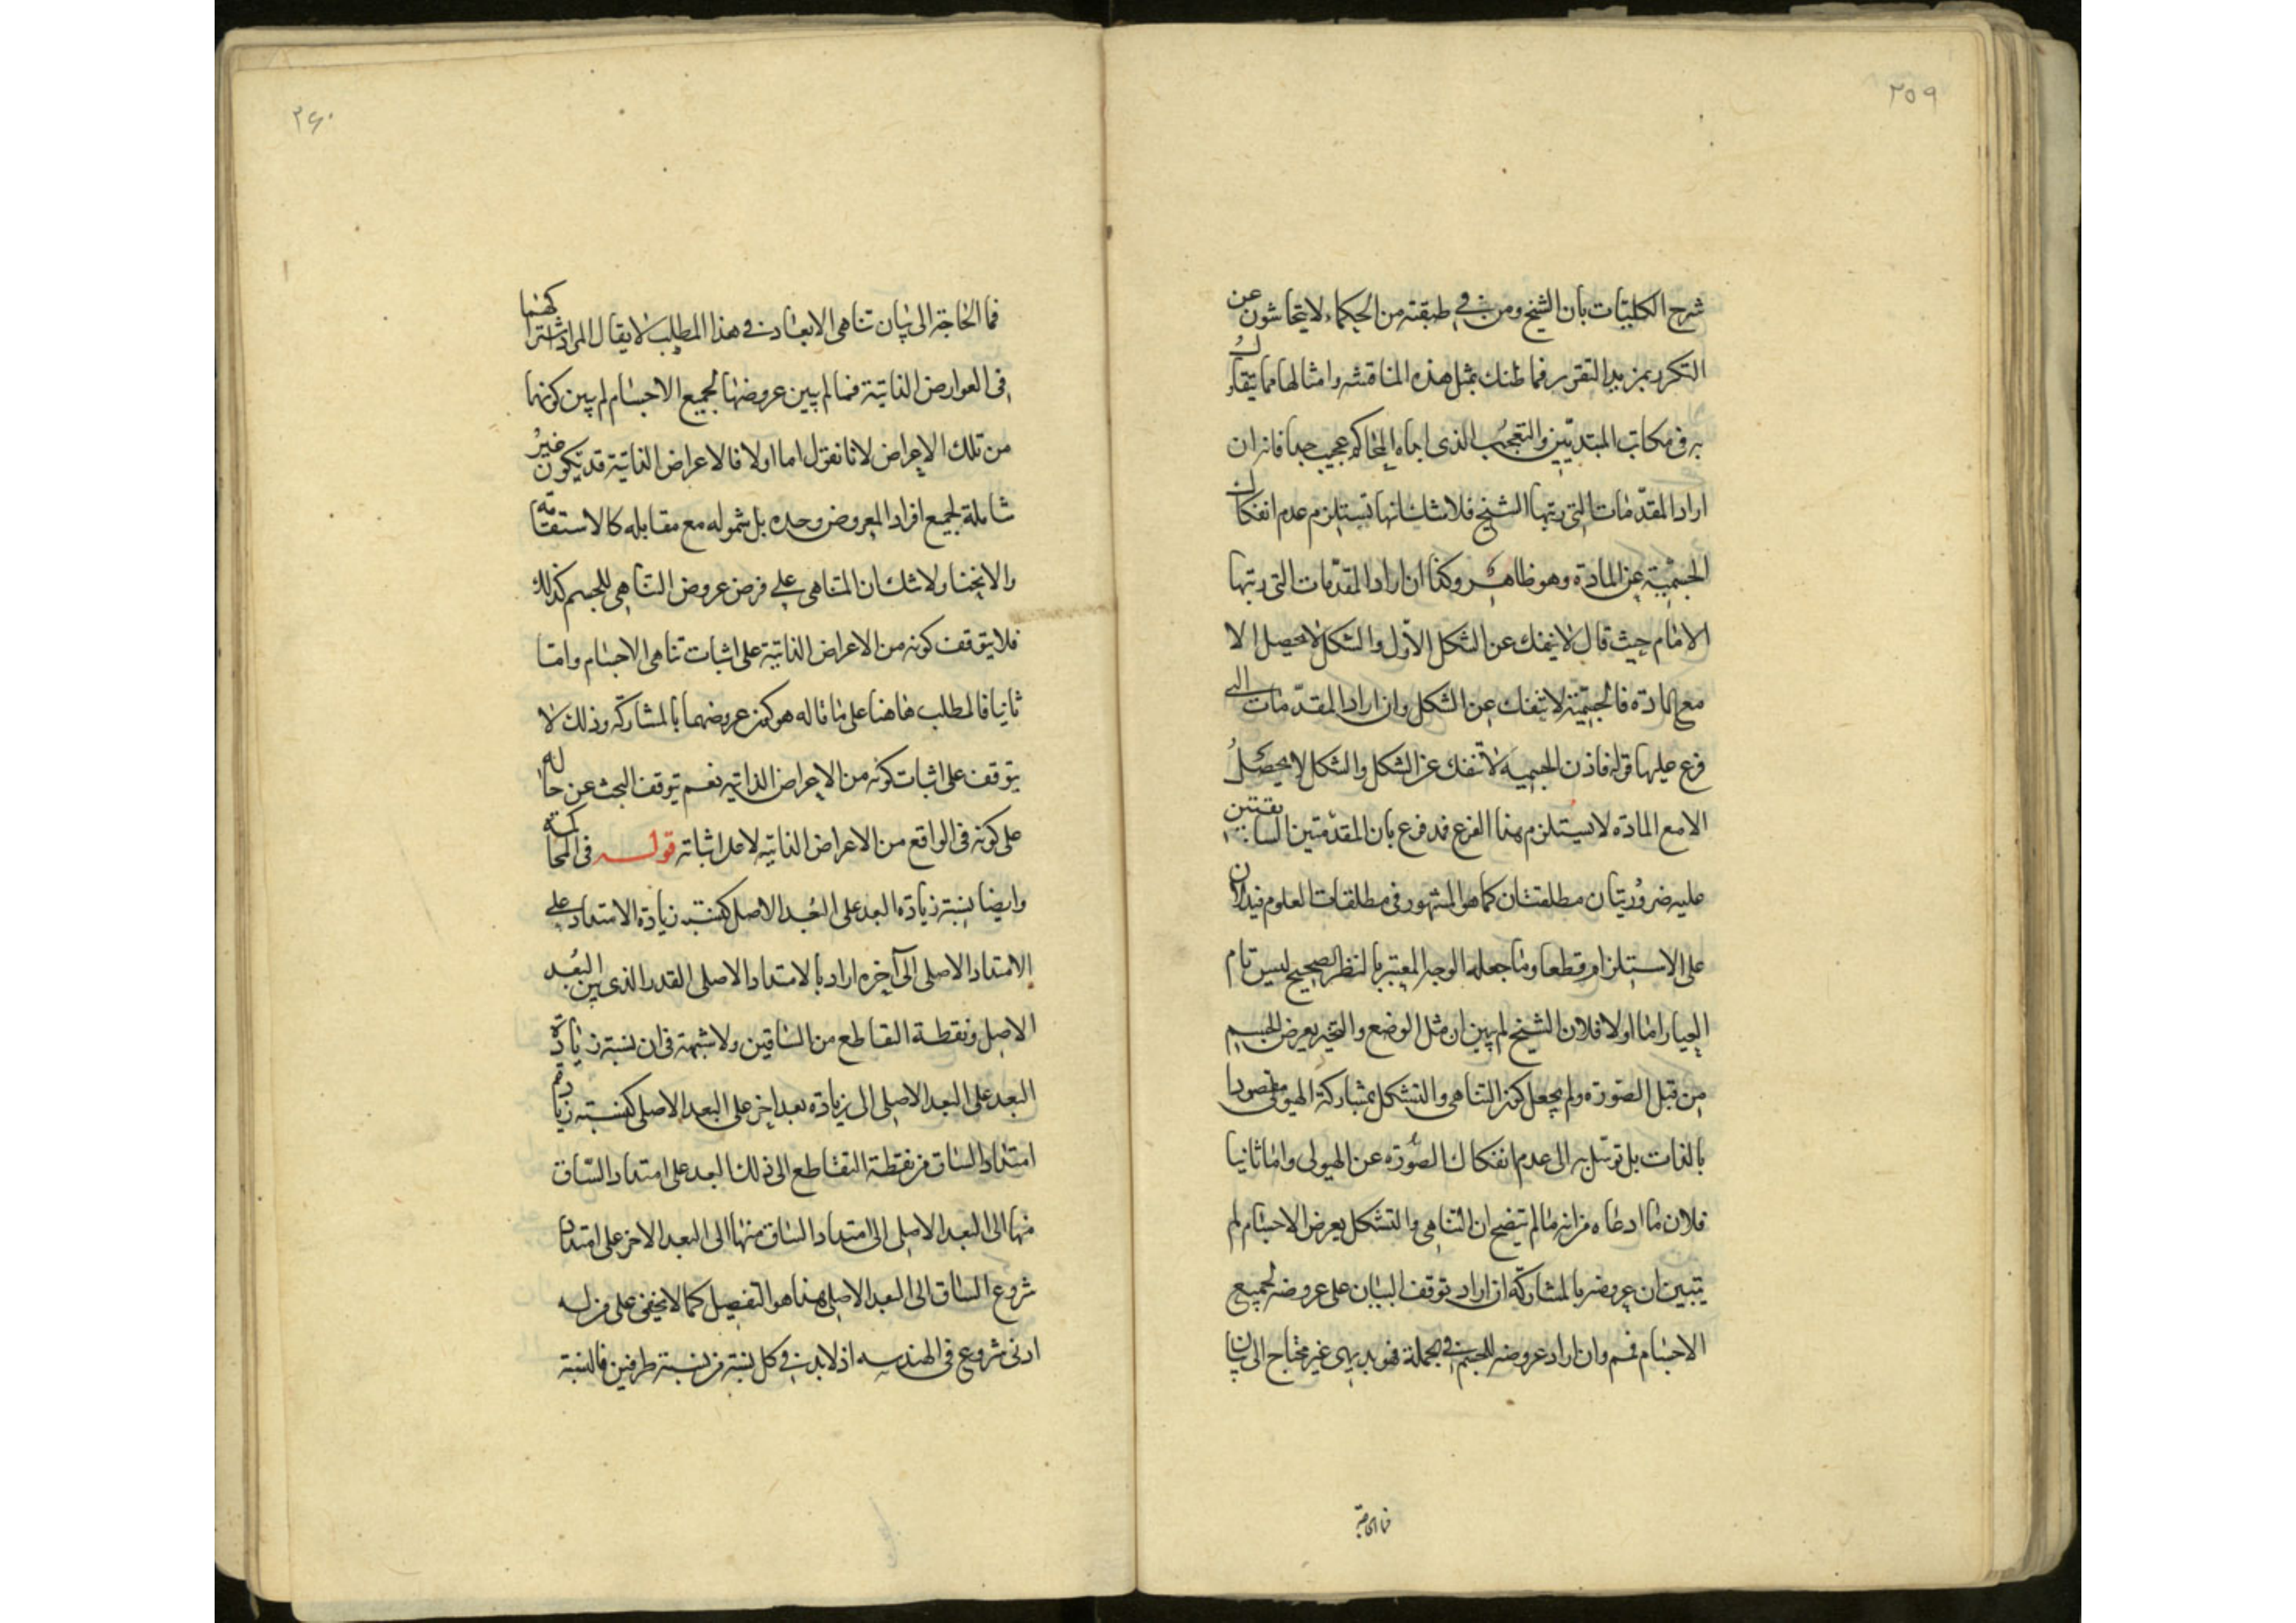 ۲۵۹
شرح الكليات بان الشيخ ومن في طبقته من الحكماء لا يتحاشون عن
التكرر بمزيد التقرير فما ظنك بمثل هذه المناقشه وامثالها مما يتقاك
به في مكاتب المبتديين والتعجب الذى ابداه المحاكم عجيب جدا فانه ان
اراد المقدمات التي رتبها الشيخ فلا شك انها تستلزم عدم انفكاك
الجسمية عن المادة وهو ظاهر وكذا ان اراد المقدمات التي رتبها
الامام حيث قال لا ينفك عن الشكل الاول والشكل لا يحصل الا
مع المادة فالجسمية لا تنفك عن الشكل وان اراد المقدمات التي
فرع عليها قوله فاذن الجسميه لا تنفك عن الشكل والشكل لا يحصل
الا مع المادة لا يستلزم هذا الفرع فمدفوع بان المقدمتين السابقتين
عليه ضروريتان مطلقتان كما هو المشهور في مطلقات العلوم فيدلان
على الاستلزام قطعا وما جعله الوجه المعتبر بالنظر الصحيح ليس تام
العيار اما اولا فلان الشيخ لم يبين ان مثل الوضع والتحيز يعرض للجسم
من قبل الصورة ولم يجعل كون التناهى والتشكل بمشاركة الهيولى مقصودا
بالذات بل توسل به الى عدم انفكاك الصورة عن الهيولى واما ثانيا
فلان ما ادعاه من انه ما لم يتضح ان التناهى والتشكل يعرض الاجسام لم
يتبين ان عروضه بالمشاركة ان اراد توقف البيان على عروضه لجميع
الاجسام فمم وان اراد عروضه للجسم في الجملة فهو بديهى غير محتاج الى بيان
فما الحاجة
۲۶۰
فما الحاجة الى بيان تناهى الابعاد في هذا المطلب لا يقال المراد اشتراكهما
في العوارض الذاتية فما لم يبين عروضها لجميع الاجسام لم يبين كونها
من تلك الاعراض لانا نقول اما اولا فالاعراض الذاتية قد يكون غير
شاملة لجميع افراد المعروض وحده بل شموله مع مقابله كالاستقامة
والانحنا ولا شك ان المتناهى على فرض عروض التناهى للجسم كذلك
فلا يتوقف كونه من الاعراض الذاتية على اثبات تناهى الاجسام واما
ثانيا فالمطلب هاهنا على ما قاله هو كون عروضهما بالمشاركة وذلك لا
يتوقف على اثبات كونه من الاعراض الذاتيه نعم يتوقف البحث عن حاله
على كونه في الواقع من الاعراض الذاتيه لا على اثباته قوله في المحاكمة
وايضا نسبة زيادة البعد على البعد الاصل كنسبة زيادة الامتداد على
الامتداد الاصلى الى آخره اراد بالامتداد الاصلى القدر الذى بين البعد
الاصل ونقطة التقاطع من الساقين ولا شبهة في ان نسبة زيادة
البعد على البعد الاصلى الى زيادة بعد اخر على البعد الاصلى كنسبة زيادة
امتداد الساق من نقطة التقاطع الى ذلك البعد على امتداد الساق
منها الى البعد الاصلى الى امتداد الساق منها الى البعد الاخر على امتداد
شروع الساق الى البعد الاصلى هذا هو التفصيل كما لا يخفى على من له
ادنى شروع في الهندسه اذ لابد في كل نسبة من نسبة طرفين فالنسبة